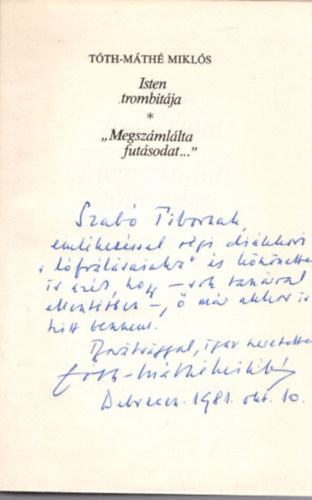 TÓTH-MÁTHÉ MIKLÓS
Isten
trombitája
*
„Megszámlálta
futásodat..."
Szabó Tibornak,
emlékezéssel régi diákkori
és
azért, hogy – sok tanárral
ellentétben –, ő már akkor is
hitt bennem.
Barátsággal, igaz szeretettel
Tóth-Máthé Miklós
Debrecen, 1981. okt. 10.